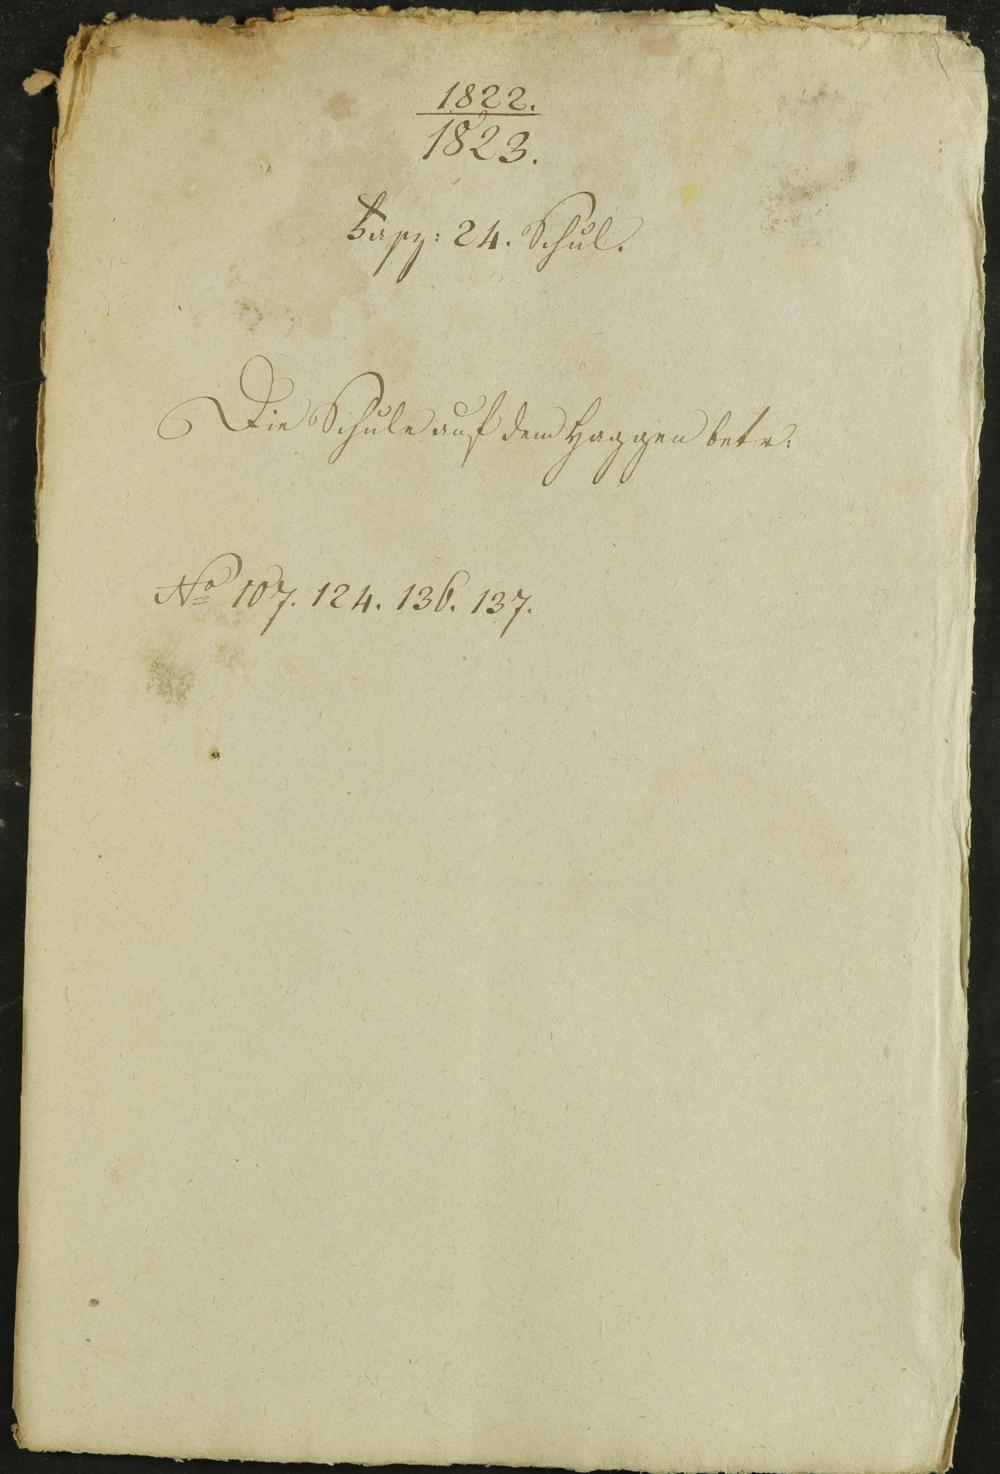 1822.
1823.
24. Schul.
Die Schule auf dem Haggen betr:
No 107. 124. 136. 137.